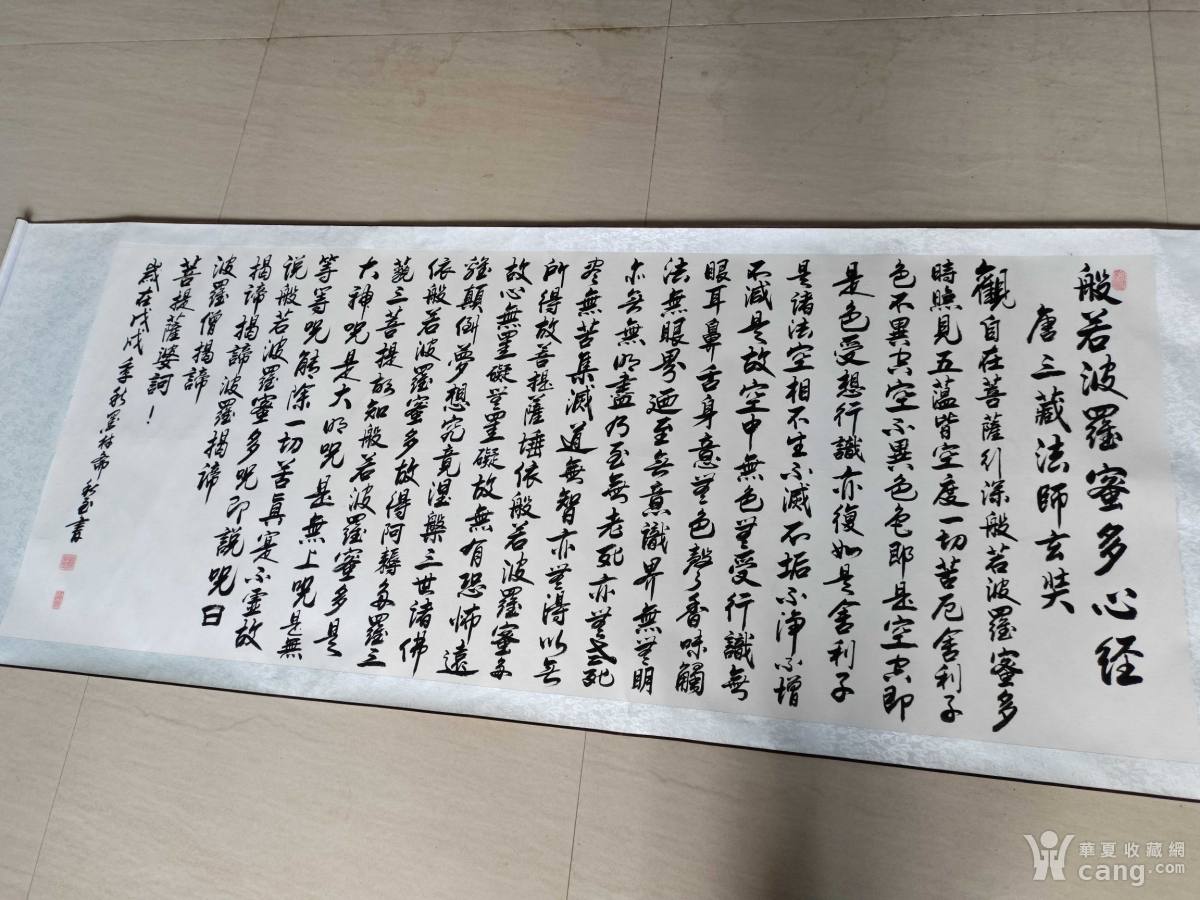 般若波羅蜜多心经
唐三藏法師玄奘
觀自在菩薩行深般若波羅蜜多
時照見五蕴皆空度一切苦厄舍利子
色不異空空不異色色即是空空即
是色受想行識亦復如是舍利子
是諸法空相不生不滅不垢不淨不增
不減是故空中無色無受行識無
眼耳鼻舌身意無色聲香味觸
法無眼界廼至無意識界無無明
亦無無明盡乃至無老死亦無老死
盡無苦集滅道無智亦無得以無
所得故菩提薩埵依般若波羅蜜多
故心無罣礙無罣礙故無有恐怖遠
離顛倒夢想究竟涅槃三世諸佛
依般若波羅蜜多故得阿耨多羅三
藐三菩提故知般若波羅蜜多是
大神呪是大明呪是無上呪是無
等等呪能除一切苦真實不虛故
説般若波羅蜜多呪即説呪曰
揭諦揭諦波羅揭諦
波羅僧揭諦
菩提薩婆訶！
歲在戊戌季秋書
華夏收藏網
cang.com